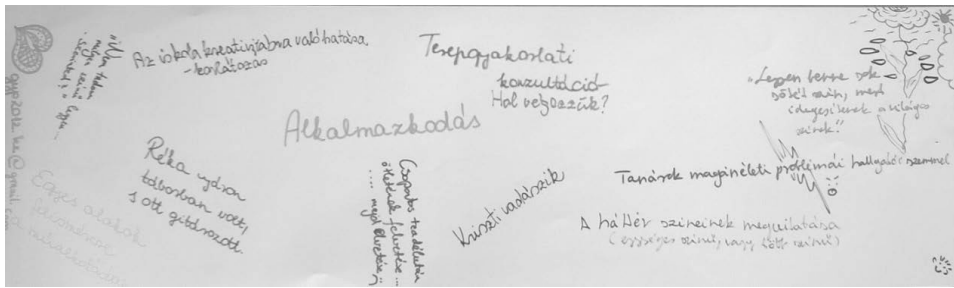 "Nem tudom
milyen színű legyen
Az iskola kreativitásra való hatása
- korlátozás
Terepgyakorlati
konzultáció
Hol végezzük?
"Legyen benne sok
sötét szín, mert
idegesítenek a világos
színek!"
Alkalmazkodás
Réka nyáron
táborban volt,
s ott gitározott
Csoportos
ötletének felvetése...
.... majd elvetése
Kriszti vadászik
Tanárok magánéleti problémái hallgatói szemmel
A háttér színeinek megvilatása
(egységes színű, vagy több színű)
Egyes alakok